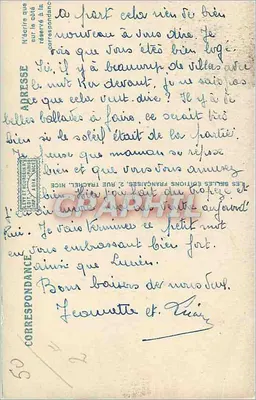 à part cela rien de bien
nouveau à vous dire. Je
vois que vous êtes bien logé
Ici, il y à beaucoup de villas avec
le mot Ker devant, je ne sais pas
ce que cela veut dire? Il y à de
belles ballades à faire, ce serait très
bien si le soleil était de la partie.
Je pense que maman se repose
bien et que vous vous amusez
bien
aujourd'
hui. Je vais terminer ce petit mot
en vous embrassant bien fort.
ainsi que Lucien.
Bons baisers de nous deux.
Jeannette et
50
2
N'écrire que
sur le côté
réservé à la
correspondance
ADRESSE
CORRESPONDANCE
LES BELLES EDITIONS FRANÇAISES, 2, RUE TRACHEL, NICE
CPARAMA